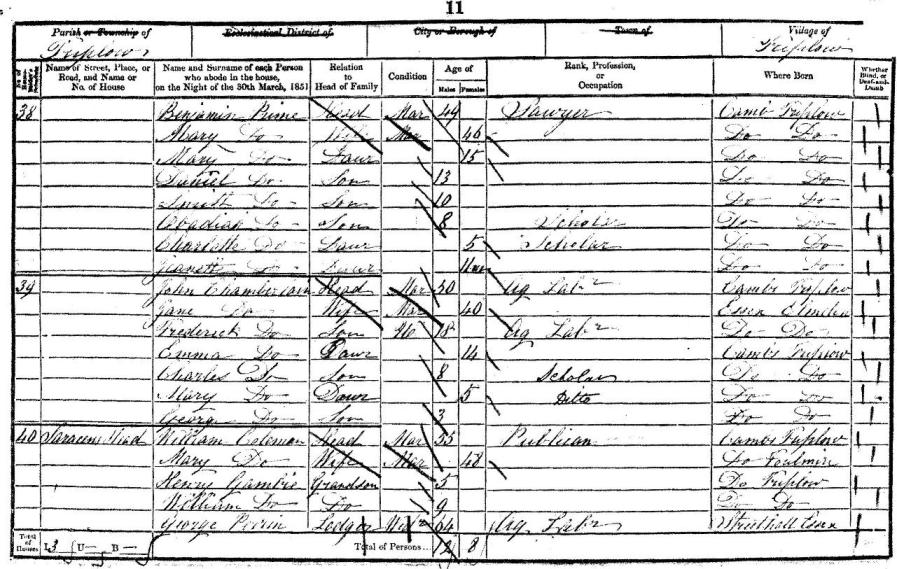 11
Parish or Township of Ecclesiastical District of City or Borough of Town of Village of
Triplow Triplow
Name of Street, Place, or Road, and Name or No. of House
Name and Surname of each Person who abode in the house, on the Night of the 30th March, 1851
Relation to Head of Family
Condition
Age of
Males Females
Rank, Profession, or Occupation
Where Born
Whether Blind, or Deaf-and-Dumb
38 Benjamin Prime Head Mar 49 Sawyer Camb Triplow
Mary Do Wife Mar 46 Do Do
Mary Do Daur 15 Do Do
Daniel Do Son 13 Do Do
Do Son 10 Do Do
Obadiah Do Son 8 Scholar Do Do
Charlotte Do Daur 5 Scholar Do Do
Do Daur Do Do
39 John Chamberlain Head Mar 50 Ag Labr Cambs Triplow
Jane Do Wife Mar 40 Essex
Frederick Do Son 18 Ag Labr Do Do
Emma Do Daur 14 Cambs Triplow
Charles Do Son 8 Scholar Do Do
Mary Do Daur 5 Ditto Do Do
George Do Son 3 Do Do
40 Saracens Head William Coleman Head Mar 55 Publican Cambs Triplow
Mary Do Wife Mar 48 Do Foulmire
Henry Gambie Grandson 5 Do Triplow
William Do Do 9 Do Do
George Perrin Lodger 64 Ag Labr Streethall Essex
Total of Houses I 3 U— B— Total of Persons... 12 8